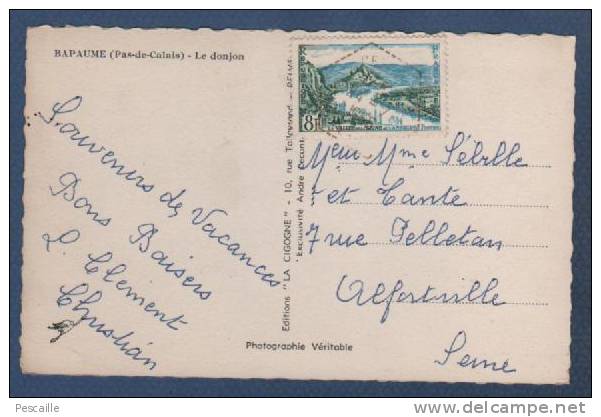 BAPAUME (Pas-de-Calais) - Le donjon
Souvenirs de Vacances
Bons Baisers
L. Clément
Christian
Editions "LA CIGOGNE" - 10, rue
Exclusivité André
8f
M et Mme Sébille
et Tante
7 rue Pelletan
Alfortville
Seine
Photographie Véritable
Pescaille
delcampe.net